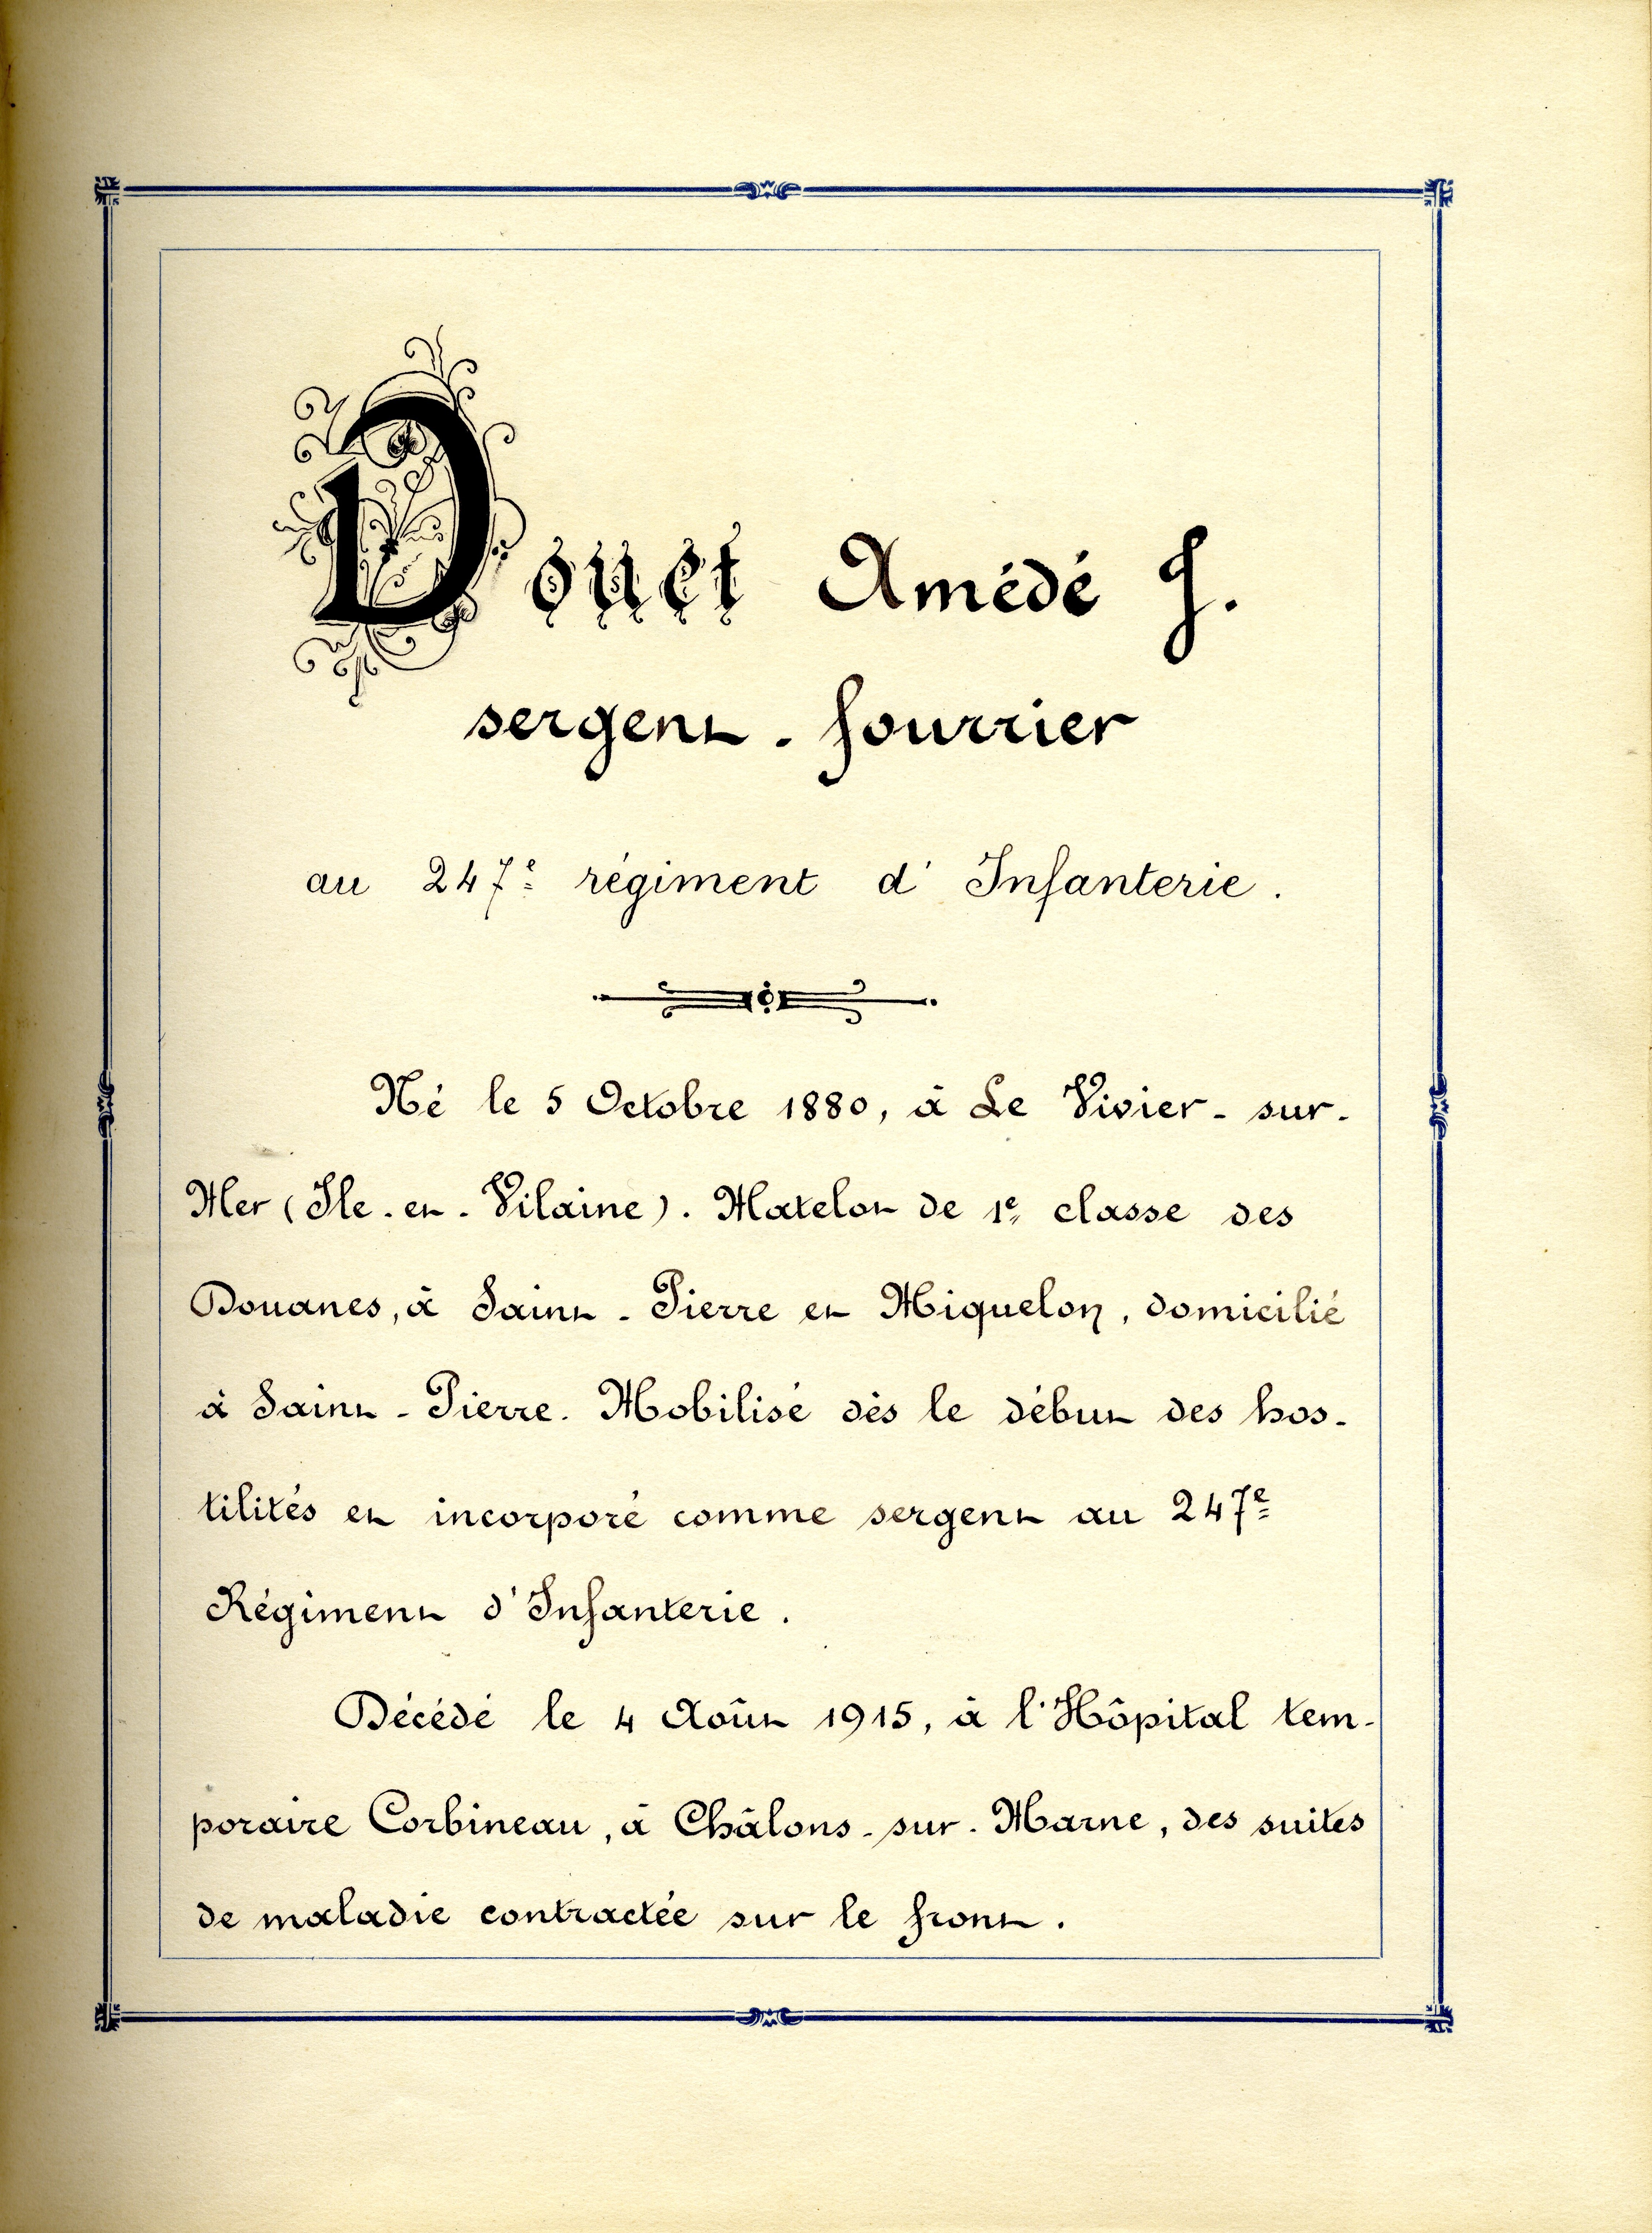 Douet Amédé J.
sergent-fourrier
au 247e régiment d'Infanterie.
Né le 5 Octobre 1880, à Le Vivier-sur-
Mer (Ile-en-Vilaine). Matelot de 1e classe des
Douanes, à Saint-Pierre et Miquelon, domicilié
à Saint-Pierre. Mobilisé dès le début des hos-
tilités et incorporé comme sergent au 247e
Régiment d'Infanterie.
Décédé le 4 Août 1915, à l'Hôpital tem-
poraire Corbineau, à Châlons-sur-Marne, des suites
de maladie contractée sur le front.